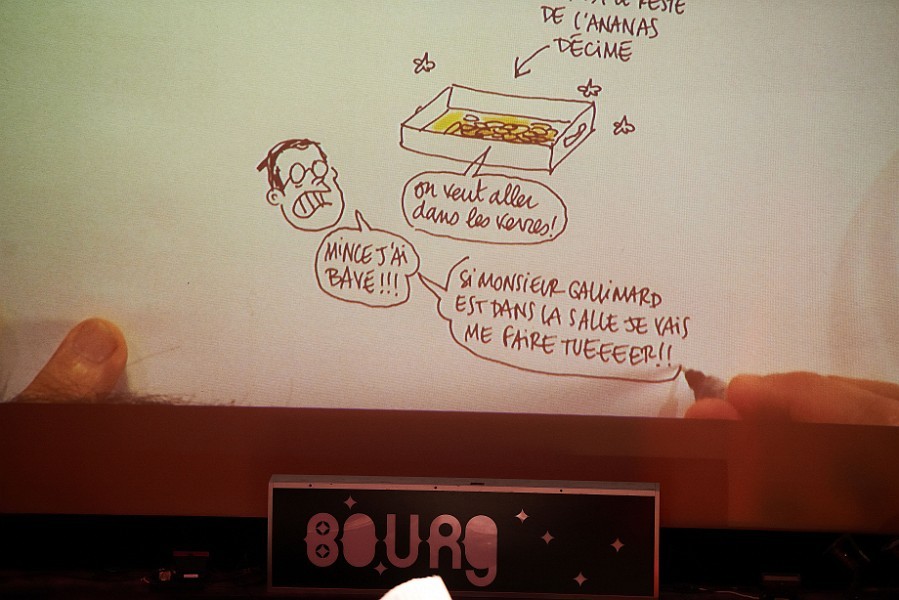 LE RESTE
DE L'ANANAS
DÉCIMÉ
on veut aller
dans les verres!
MINCE J'AI
BAVÉ!!!
SI MONSIEUR GALLIMARD
EST DANS LA SALLE JE VAIS
ME FAIRE TUEEEER!!
BOURG